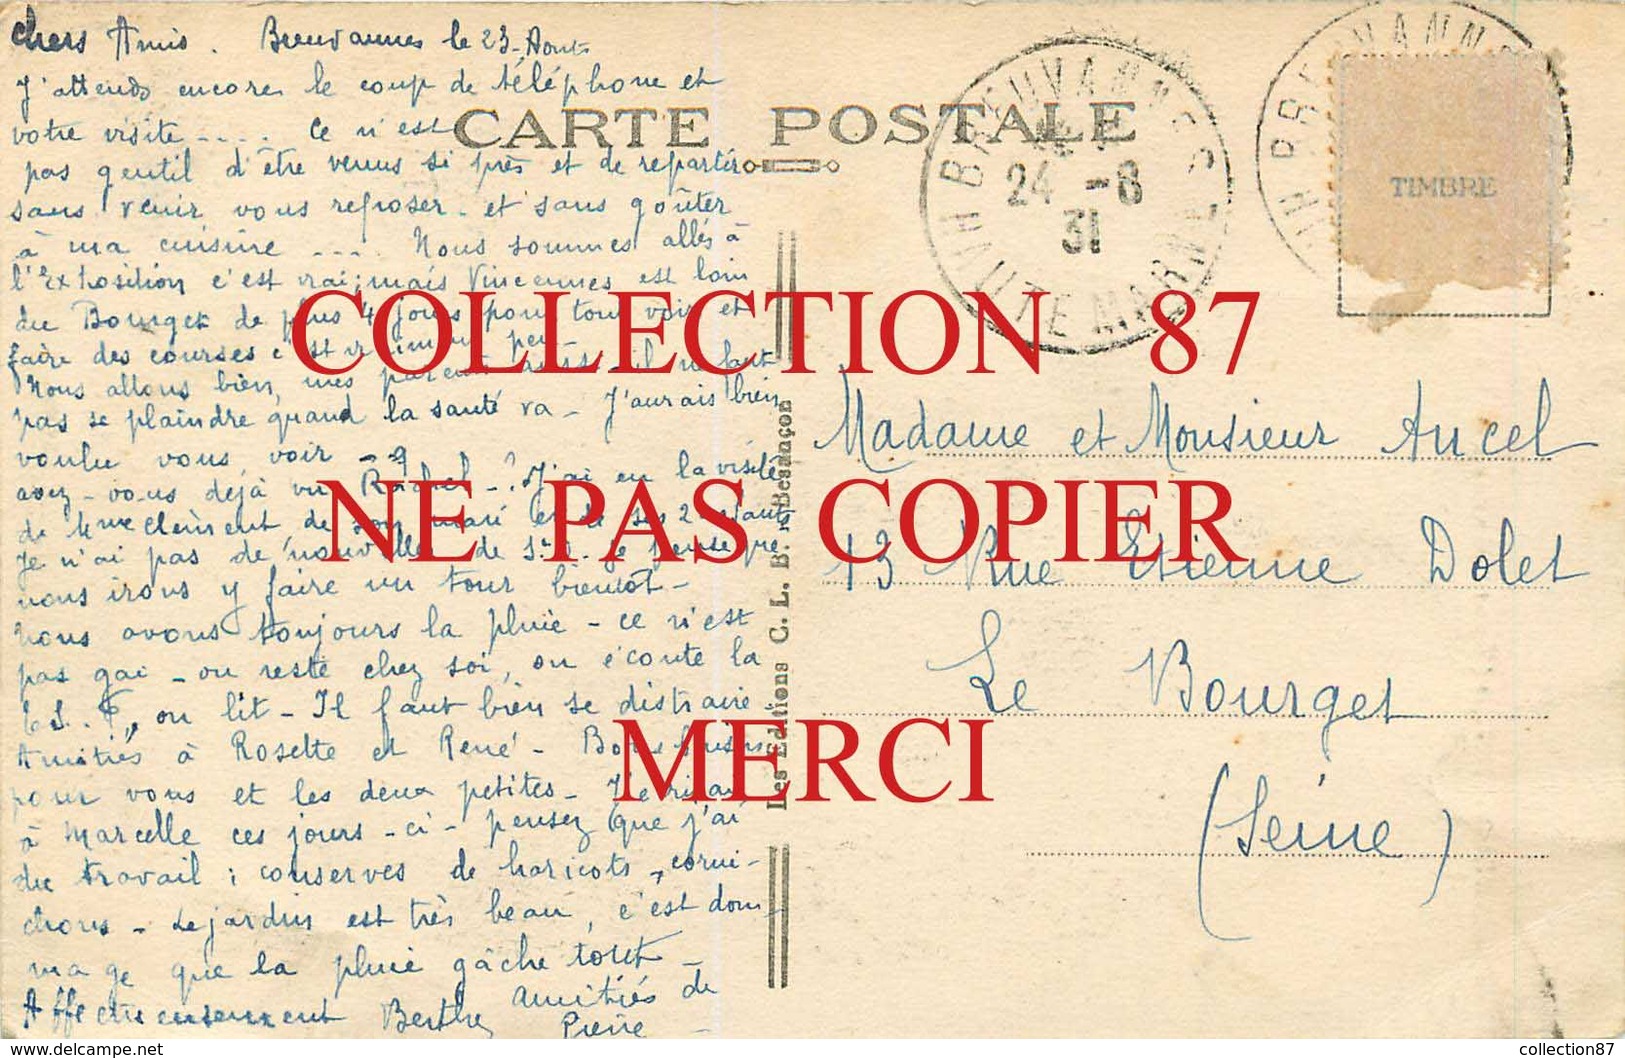 chers Amis. Breuvannes le 23-Aout
J'attends encore le coup de téléphone et
votre visite .... Ce n'est
pas gentil d'être venus si près et de repartir
sans venir vous reposer - et sans goûter
à ma cuisine .... Nous sommes allés à
l'Exposition c'est vrai; mais Vincennes est loin
du Bourget de plus 4 jours pour tout voir et
faire des courses c'est vraiment peu -
Nous allons bien, mes parents aussi - il ne faut
pas se plaindre quand la santé va - J'aurais bien
voulu vous voir -
avez-vous déjà vu Rachel - ? J'ai eu la visite
de Mme Clément, de son mari et de ses 2 enfants
Je n'ai pas de nouvelles de je pense que
nous irons y faire un tour bientôt -
Nous avons toujours la pluie - ce n'est
pas gai - on reste chez soi, on écoute la
T.S.F, on lit - Il faut bien se distraire -
Amitiés à Rosette et René - Bons baisers
pour vous et les deux petites - J'écrirai
à Marcelle ces jours-ci - pensez que j'ai
du travail; conserves de haricots, corni-
chons - Le jardin est très beau, c'est dom-
mage que la pluie gâche tout -
Affectueusement Berthe amitiés de
Pierre -
CARTE POSTALE
BREUVANNES
24 -8
31
HAUTE MARNE
TIMBRE
Les Editions C. L. B. - Besançon
Madame et Monsieur Ancel
13 Rue Etienne Dolet
Le Bourget
(Seine)
COLLECTION 87
NE PAS COPIER
MERCI
www.delcampe.net
collection87